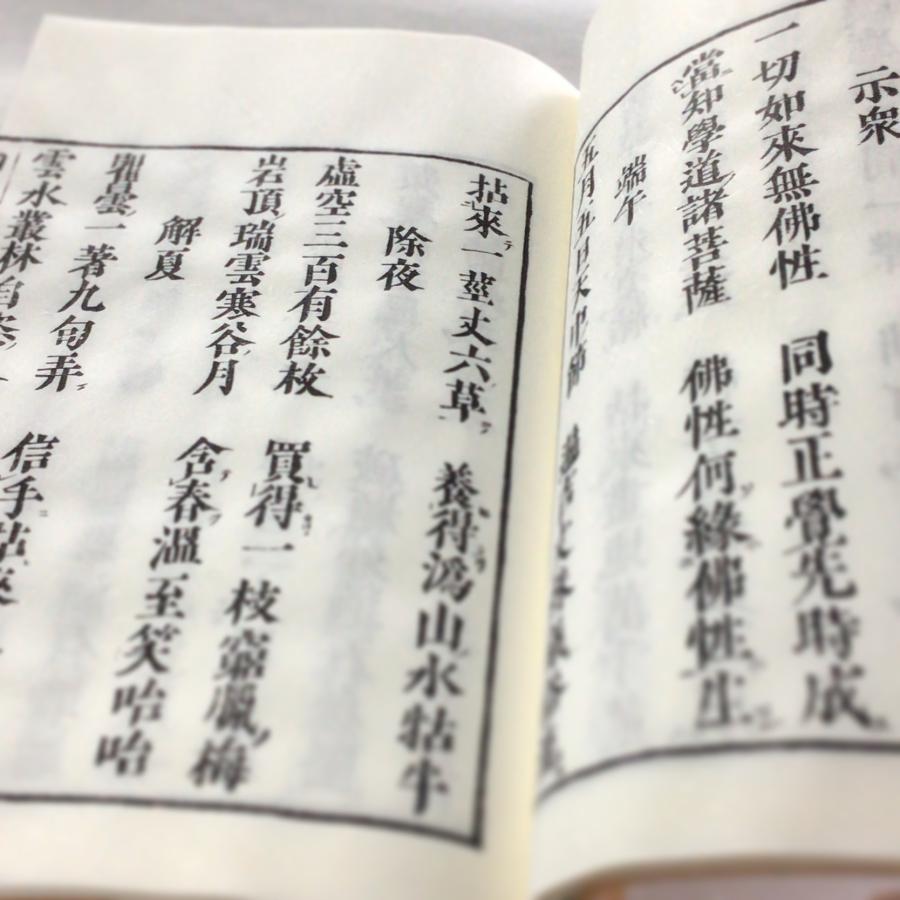 示衆
一切如來無佛性 同時正覺先時成
當知學道諸菩薩 佛性何緣佛性生
端午
五月五日天中節
拈來一莖丈六草 養得潙山水牯牛
除夜
虛空三百有餘枚 買得一枝窮臘梅
岩頂瑞雲寒谷月 含春溫至笑哈哈
解夏
瞿曇一著九旬弄 信手拈來
雲水叢林